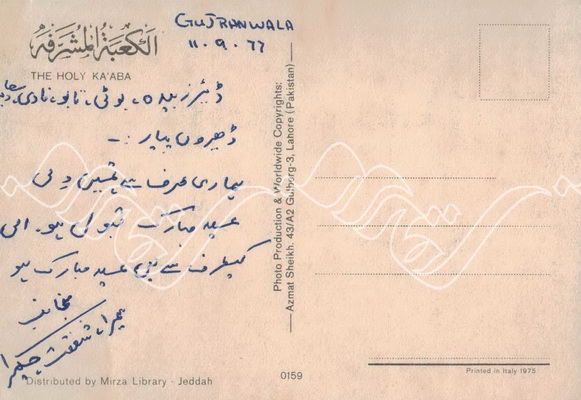 الكعبة المشرفة
THE HOLY KA'ABA
GUJRANWALA
11.9.77
ڈئیر زبیدہ، بوٹی، نابو، نادی،
ڈھیروں پیار :-
ہماری طرف سے تمہیں دلی
عید مبارک قبول ہو۔ امی
کیطرف سے بھی عید مبارک ہو
منجانب
شفقت
Photo Production & Worldwide Copyrights:
Azmat Sheikh. 43/A2 Gulberg-3, Lahore (Pakistan)
Distributed by Mirza Library - Jeddah
0159
Printed in Italy 1975